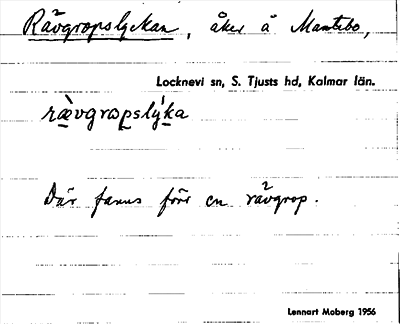 Rävgropslyckan, åker å Mantebo,
Locknevi sn, S. Tjusts hd, Kalmar län.
ræ̀vgropslý̱ka
Där fanns förr en rävgrop.
Lennart Moberg 1956